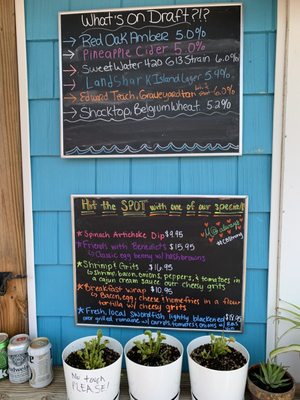 What's On Draft?!?
→ Red Oak Amber 5.0%
→ Pineapple Cider 5.0%
→ SweetWater 420 G13 Strain 6.0%
→ Landshark Island Lager 5.4%
→ Edward Teach, Graveyard 6.0%
→ Shocktop, Belgium Wheat 5.2%
Hit the SPOT with one of our Specials!
★ Spinach Artichoke Dip $8.95
★ Friends with Benedicts $15.95
↳ Classic egg benny w/ hashbrowns
★ Shrimp & Grits $16.95
↳ shrimp, bacon, onions, peppers, & tomatoes in
a cajun cream sauce over cheesy grits
★ Breakfast Wrap $10.95
↳ Bacon, egg, cheese & home fries in a flour
tortilla w/ cheesy grits
★ Fresh, local Swordfish lightly blackened
over grilled romaine w/ carrots, tomatoes, onions
No touch
PLEASE!